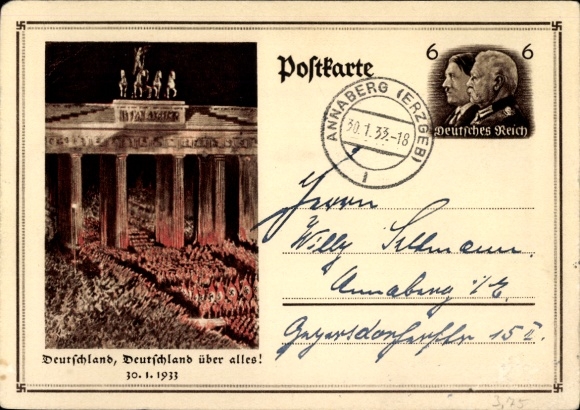 Postkarte
6 6
Deutsches Reich
ANNABERG (ERZGEB)
30.1.33.-18
1
Herrn
Willy Sellmann.
Annaberg i/E.
Geyersdorferstr 15 II.
Deutschland, Deutschland über alles!
30. 1. 1933
3,75